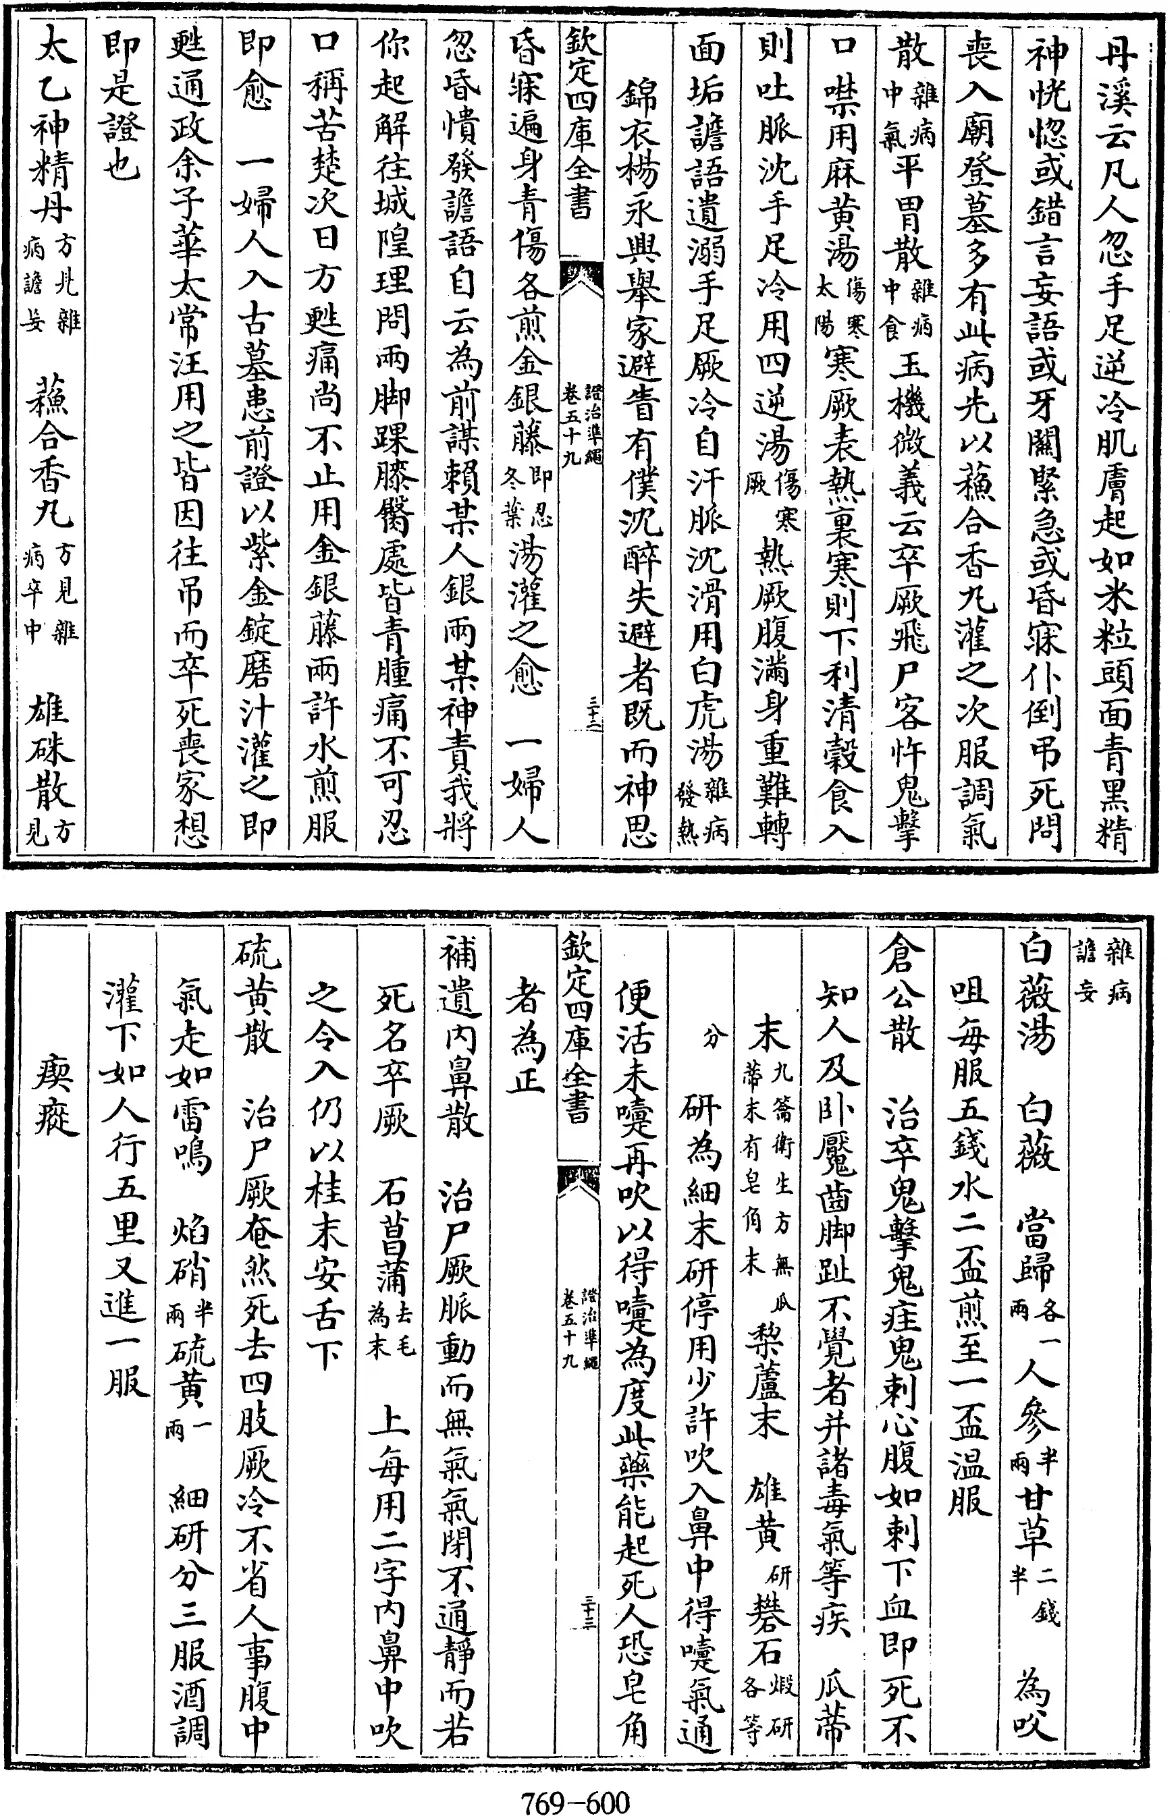 丹溪云凡人忽手足逆冷肌膚起如米粒頭面青黑精
神恍惚或錯言妄語或牙關緊急或昏寐仆倒吊死問
喪入廟登墓多有此病先以蘓合香丸灌之次服調氣
散雜病中氣平胃散雜病中食玉機微義云卒厥飛尸客忤鬼擊
口噤用麻黄湯傷寒太陽寒厥表熱裏寒則下利清穀食入
則吐脈沈手足冷用四逆湯傷寒厥熱厥腹滿身重難轉
面垢譫語遺溺手足厥冷自汗脈沈滑用白虎湯雜病發熱
錦衣楊永興舉家避眚有僕沈醉失避者既而神思
欽定四庫全書 證治準繩卷五十九 三十二
昏寐遍身青傷各煎金銀藤即忍冬葉湯灌之愈 一婦人
忽昏憒發譫語自云為前謀賴某人銀兩某神責我將
你起解往城隍理問兩脚踝膝臀處皆青腫痛不可忍
口稱苦楚次日方甦痛尚不止用金銀藤兩許水煎服
即愈 一婦人入古墓患前證以紫金錠磨汁灌之即
甦通政余子華太常汪用之皆因往吊而卒死喪家想
即是證也
太乙神精丹方見雜病譫妄 蘓合香丸方見雜病卒中 雄硃散方見
雜病譫妄
白薇湯 白薇 當歸各一兩人參半兩甘草二錢半 為㕮
咀每服五錢水二盃煎至一盃温服
倉公散 治卒鬼擊鬼疰鬼刺心腹如刺下血即死不
知人及卧魘齒脚趾不覺者并諸毒氣等疾 瓜蒂
末九籥衛生方無瓜蒂末有皂角末 藜蘆末 雄黄研礬石煅研各等
分 研為細末研停用少許吹入鼻中得嚏氣通
便活未嚏再吹以得嚏為度此藥能起死人恐皂角
欽定四庫全書 證治準繩卷五十九 三十三
者為正
補遺内鼻散 治尸厥脈動而無氣氣閉不通靜而若
死名卒厥 石菖蒲去毛為末 上每用二字内鼻中吹
之令入仍以桂末安舌下
硫黄散 治尸厥奄然死去四肢厥冷不省人事腹中
氣走如雷鳴 焰硝半兩硫黄一兩 細研分三服酒調
灌下如人行五里又進一服
瘈瘲
769-600